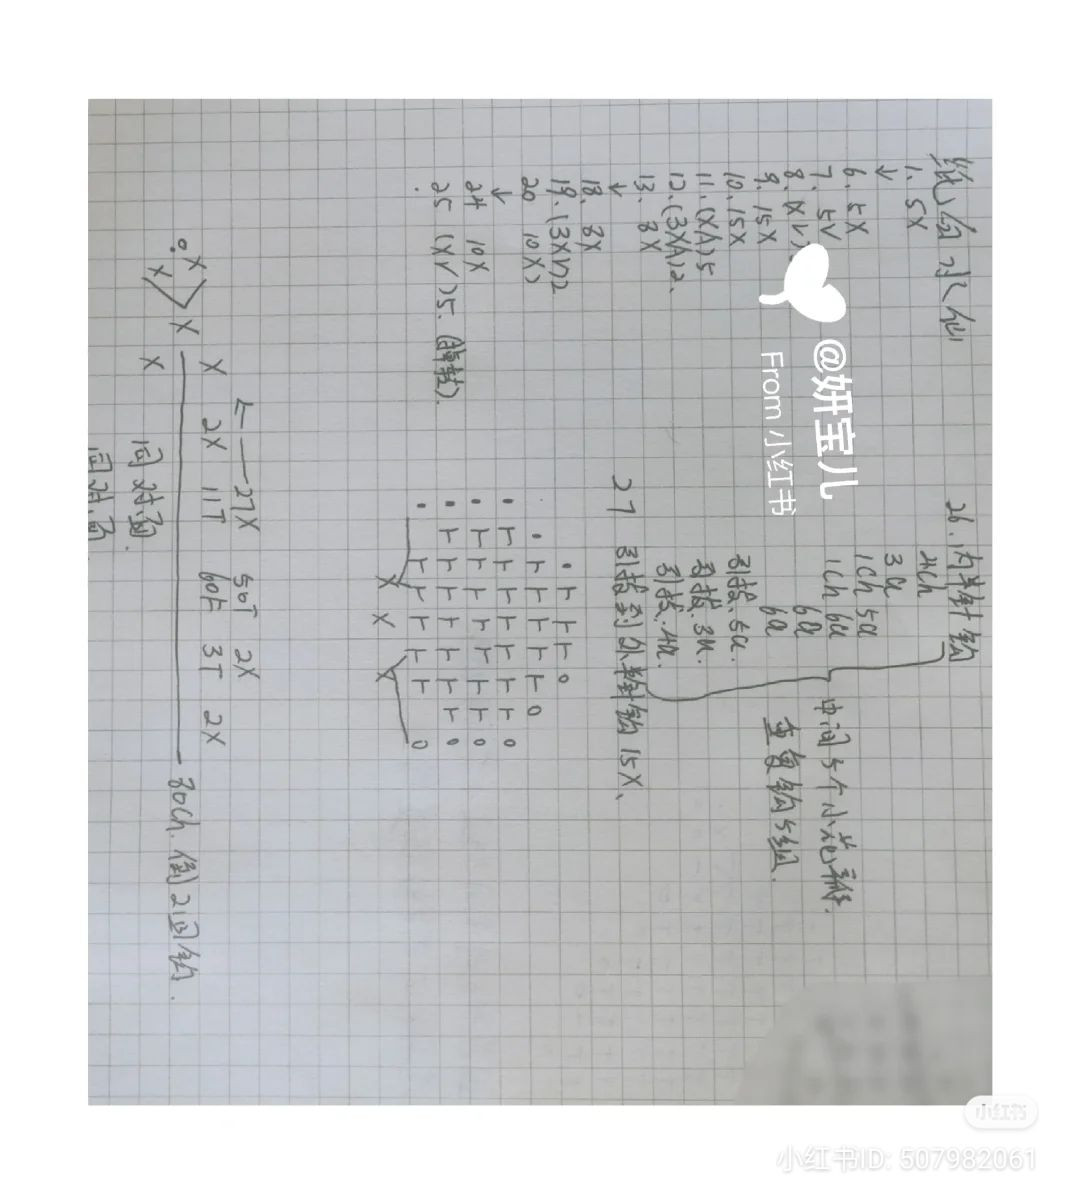 纯白水仙
1. 5X
↓
6. 5X
7. 5V
8. (XV)
9. 15X
10. 15X
11. (XA)5
12. (3XA)2、
13. 8X
↓
18. 8X
19. (3XV)2
20 10X)
↓
24 10X
25 (XV)5.
26. 内半针钩
4Ch
3Ch
1Ch 5Ch
1Ch 6Ch
6Ch
6Ch
引拔. 5Ch.
引拔. 3Ch.
引拔. 4Ch.
中间5个小花瓣.
重复钩5组.
27 引拔到外半针钩 15X、
• T T T T T T o
• T T T T T o
• T T T o
X X X
← 27X 50T 2X
X 2X 11T 60T 3T 2X
X X X
80Ch. 倒2回钩.
X 同对面.
同对面
@妍宝儿
From 小红书
小红书
小红书ID: 507982061